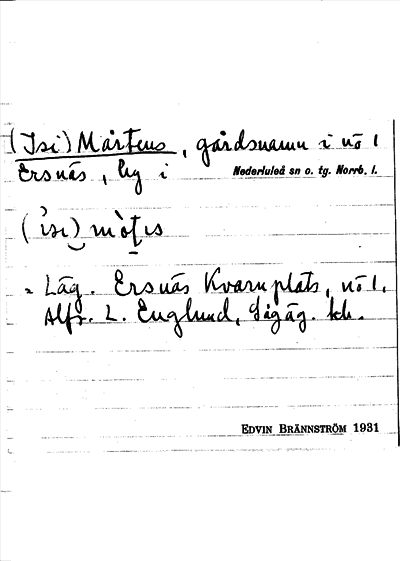 (Isi) Mårtens, gårdsnamn i nö 1
Ersnäs, by i Nederluleå sn o. tg. Norrb. l.
= Läg. Ersnäs Kvarnplats, nö 1.
Alfr. L. Englund, Sägäg. tch.
EDVIN BRÄNNSTRÖM 1931